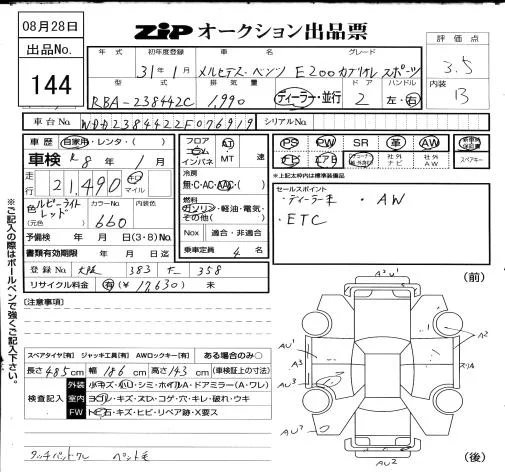 08月28日
出品No.
144
ZIP オークション出品票
評価点
3.5
内装
B
年式 初年度登録 車名 グレード
31年1月 メルセデス・ベンツ E200カブリオレ スポーツ
型式 排気量 ドア ハンドル
RBA-238442C 1,990 ディーラー・並行 2 左・右
車台No. WDD2384422F076919 シリアルNo.
車歴 自家用・レンタ・( )
車検 R8年1月
走行 21,490 キロ マイル
色 (元色) ルビーライトレッド カラーNo. 660 内装色
予備検 年 月 日(3・8)No.
書類有効期限 年 月 日迄
登録No. 大阪 383 358
リサイクル料金 有(¥17,630) 未
フロア コラム インパネ AT MT 速
冷房
無・C・AC・AAC・( )
燃料
ガソリン・軽油・電気・その他( )
Nox 適合・非適合
乗車定員 4名
PS PW SR 革 AW
ナビ エアB 社外ナビ 社外AW
スペアキー
*上記太枠内は標準装備品
セールスポイント
・ディーラー車 ・AW
・ETC
※ご記入の際はボールペンで強くご記入下さい。
[注意事項]
スペアタイヤ[有] ジャッキ工具[有] AWロックキー[有] ある場合のみ○
長さ485cm 幅186cm 高さ143cm (車検証上の寸法)
検査記入
外装 小キズ・小凹・シミ・ホイルA・ドアミラー(A・ワレ)
室内 ヨゴレ・キズ・スレ・コゲ・穴・キレ・破れ・ウキ
FW トビ石・キズ・ヒビ・リペア跡・X要ス
(前)
A2 U1
AU1
A3
AU3
AU2
A2
スリA
AU2
(後)